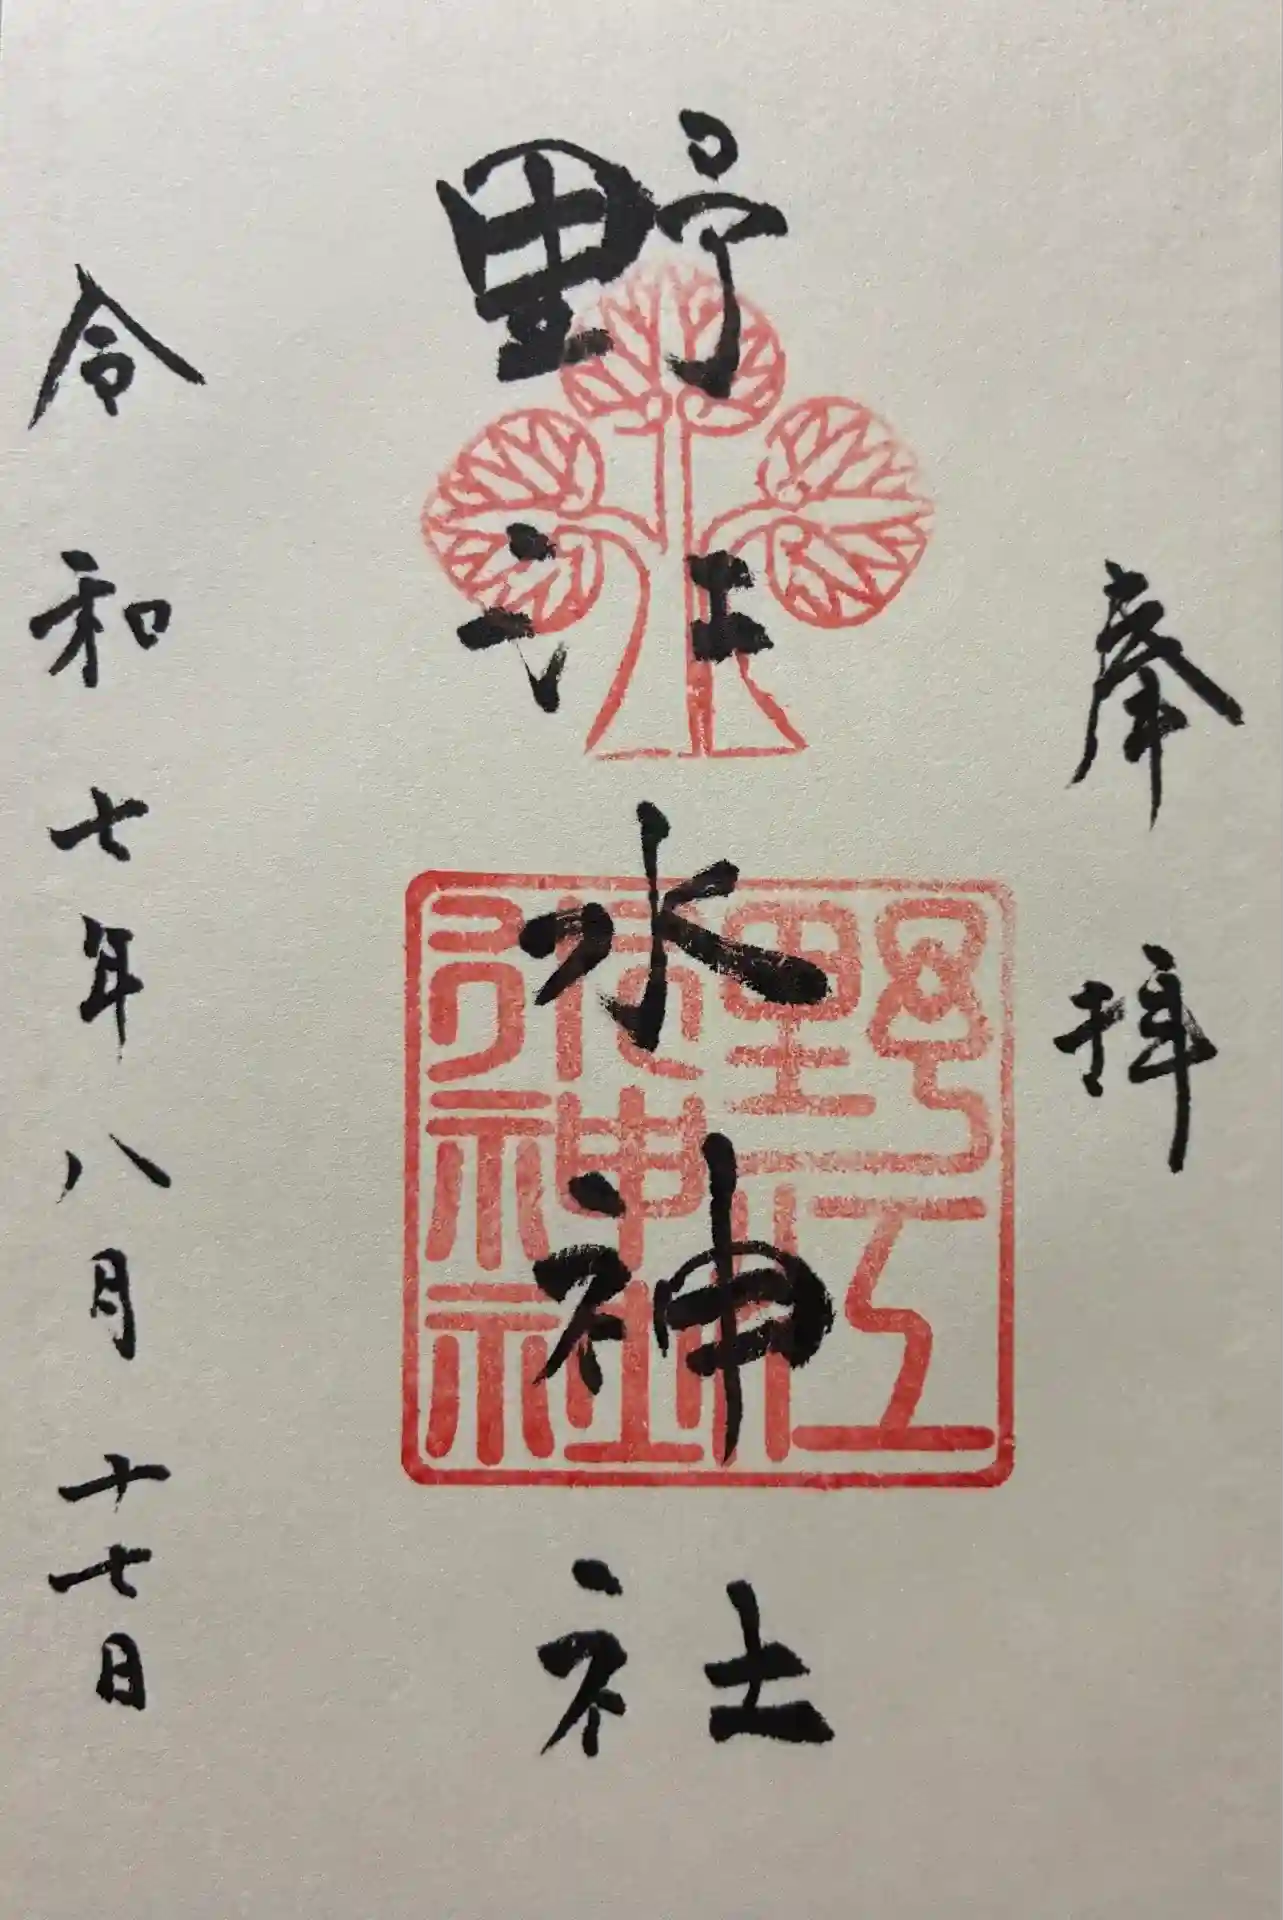 奉拝
野江水神社
令和七年八月十七日
野江
神社